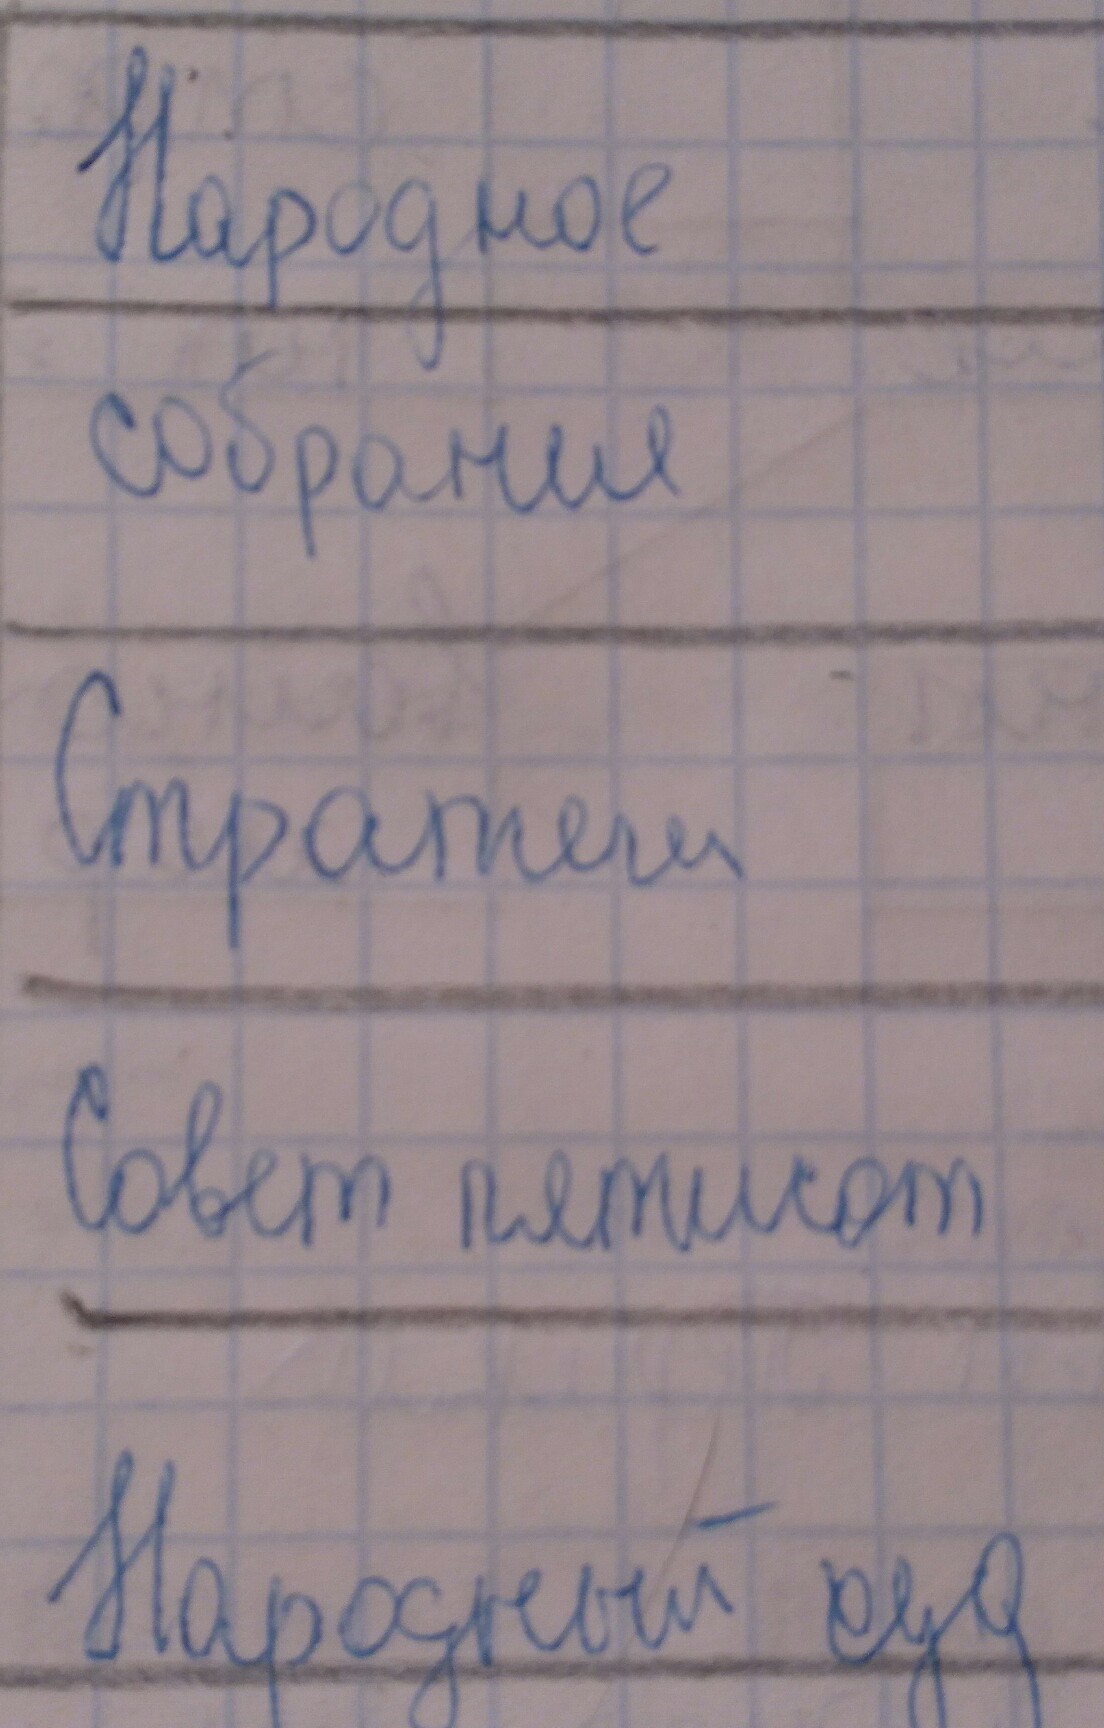 Народное
собрания
Стратеги
Совет пятисот
Народный суд